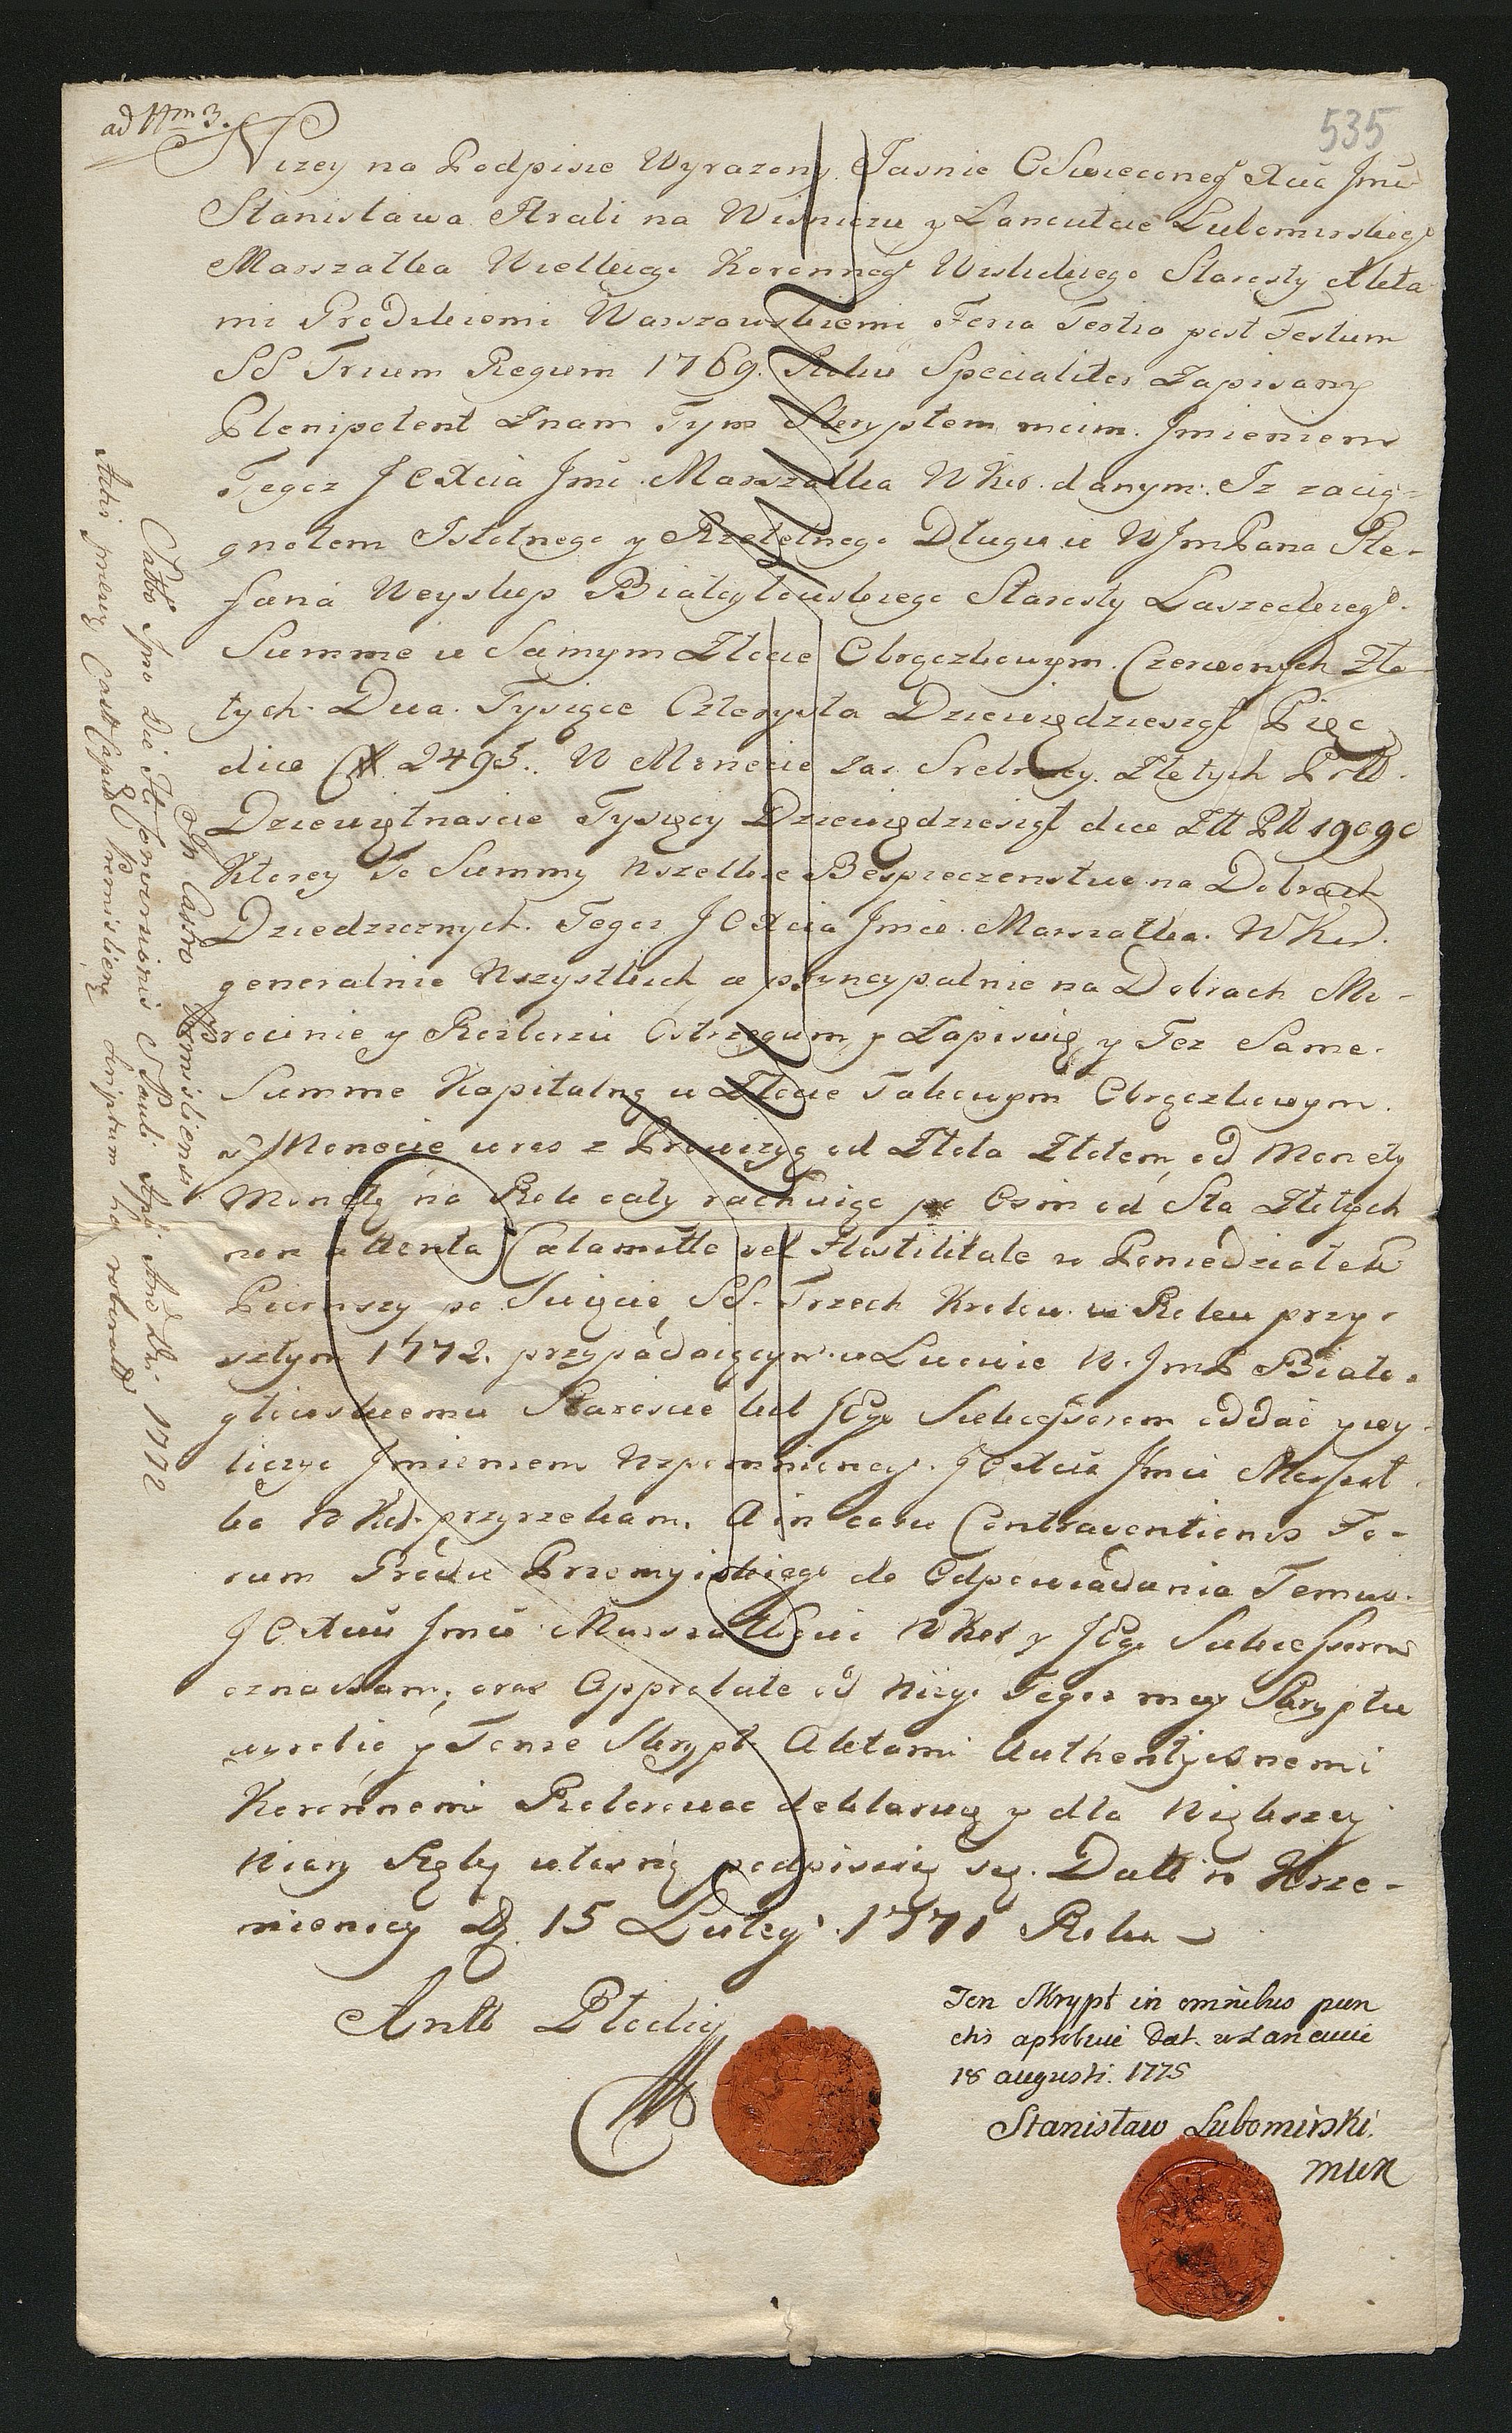 ad Nrm 3.
535
Nizey na Podpisie Wyrazony Jasnie OSwieconeg Xcia Jmci
Stanisława Hrabi na Wisniczu y Lancutcie Lubomirskieg
Marszałka Wielkiego Koronneg Wislickiego Starosty Akta
mi Grodzkiemi Warszawskiemi Feria Tertia post Festum
SS Trium Regum 1769. Roku Specialiter Zapisany
Plenipotent Znam Tym Skryptem moim. Jmieniem
Tegoz J O Xcia Jmci Marszałka WKor. danym. Iz zacią-
gnołem Istotnego y Rzetelnego Długu u WJmPana Ste-
fana Weyslup Białogłowskiego Starosty Laszeckiego.
Summe w Samym Złocie Obrączkowym. Czerwonych Zło
tych. Dwa. Tysiące Czterysta Dziewiędziesiąt Pięc
dico Cł 2495. W Monecie zas Srebrney. Złotych Poll.
Dziewiętnascie Tysięcy Dziewiędziesiąt dico Zll Pll 19090
Ktorey to Summy wszelkie Bespieczenstwo na Dobrach
Dziedzicznych. Tegoz J O Xcia Jmci. Marszałka. WKor.
generalnie Wszystkich a pryncypalnie na Dobrach Mo-
rocinie y Rozborzu Ostrzegam y Zapisuię y Tez Same.
Summe Kapitalną w Złocie Takowym Obrączkowym.
y Monecie wraz z Prowizyą od Złota Złotem, od Monety
Monetą na Rok cały rachuiąc po Osm od Sta Złotych
non attenta Calamitte vel Hostilitate w Poniedziałek
Pierwszy po Swięcie SS. Trzech Krolow. w Roku przy-
szłym 1772. przypadaiącym w Lwowie W. JmP Biało-
głowskiemu Staroscie lub JEgo Sukcessorom oddac y wy-
liczyc Jmieniem Wspomnioneg. J O Xcia Jmci Marszał
ka W Kor. przyrzekam. A in casu Contraventionis Fo-
rum Grodu Przemyiskiego do Odpowiadania Temuz.
J O Xciu Jmci Marszałkowi WKor y JEgo Sukcessorom
oznaczam, oraz Approbate od Niego Tegoz mego Skryptu
wyrobic y Tenze Skrypt Aktami Authentycznemi
Koronnemi Roborowac deklaruię y dla Większey
Wiary Ręką własną podpisuię się. Datt w Krze-
mienicy D. 15 Lutego 1771 Roku
Antt Płocki
Ten Skrypt in omnibus pun
ctis aprobuie Dat. w Lancucie
18 augusti. 1775
Stanisław Lubomirski
MWK
Castro Premisliensi
Sabbo Ipso Die Fti Conversionis S Pauli Apli Ano Dni 1772
Actis Castr Capit Premislien scriptum hoc roboratt